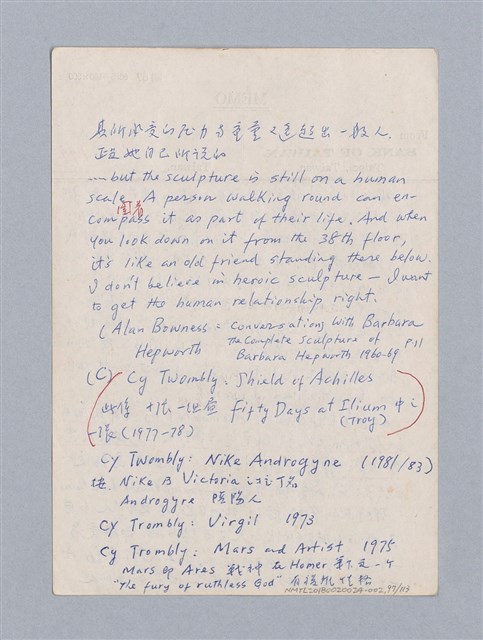 其所承受的压力与重量又远超出一般人.
正如她自己所说的
……but the sculpture is still on a human
scale. A person walking round can en-
compass it as part of their life. And when
you look down on it from the 38th floor,
it's like an old friend standing there below.
I don't believe in heroic sculpture — I want
to get the human relationship right.
(Alan Bowness: Conversations with Barbara
Hepworth the Complete Sculpture of
Barbara Hepworth 1960-69 P.11
(C) Cy Twombly: Shield of Achilles
此係十张一组画 Fifty Days at Ilium 中之
(Troy)
一張 (1977-78)
Cy Twombly: Nike Androgyne (1981/83)
Nike 为 Victoria
Androgyne 陰陽人
Cy Trombly: Virgil 1973
Cy Trombly: Mars and Artist 1975
Mars 即 Ares 戰神 在 Homer
"The fury of ruthless God"
NMTL20180020024-002,97/113